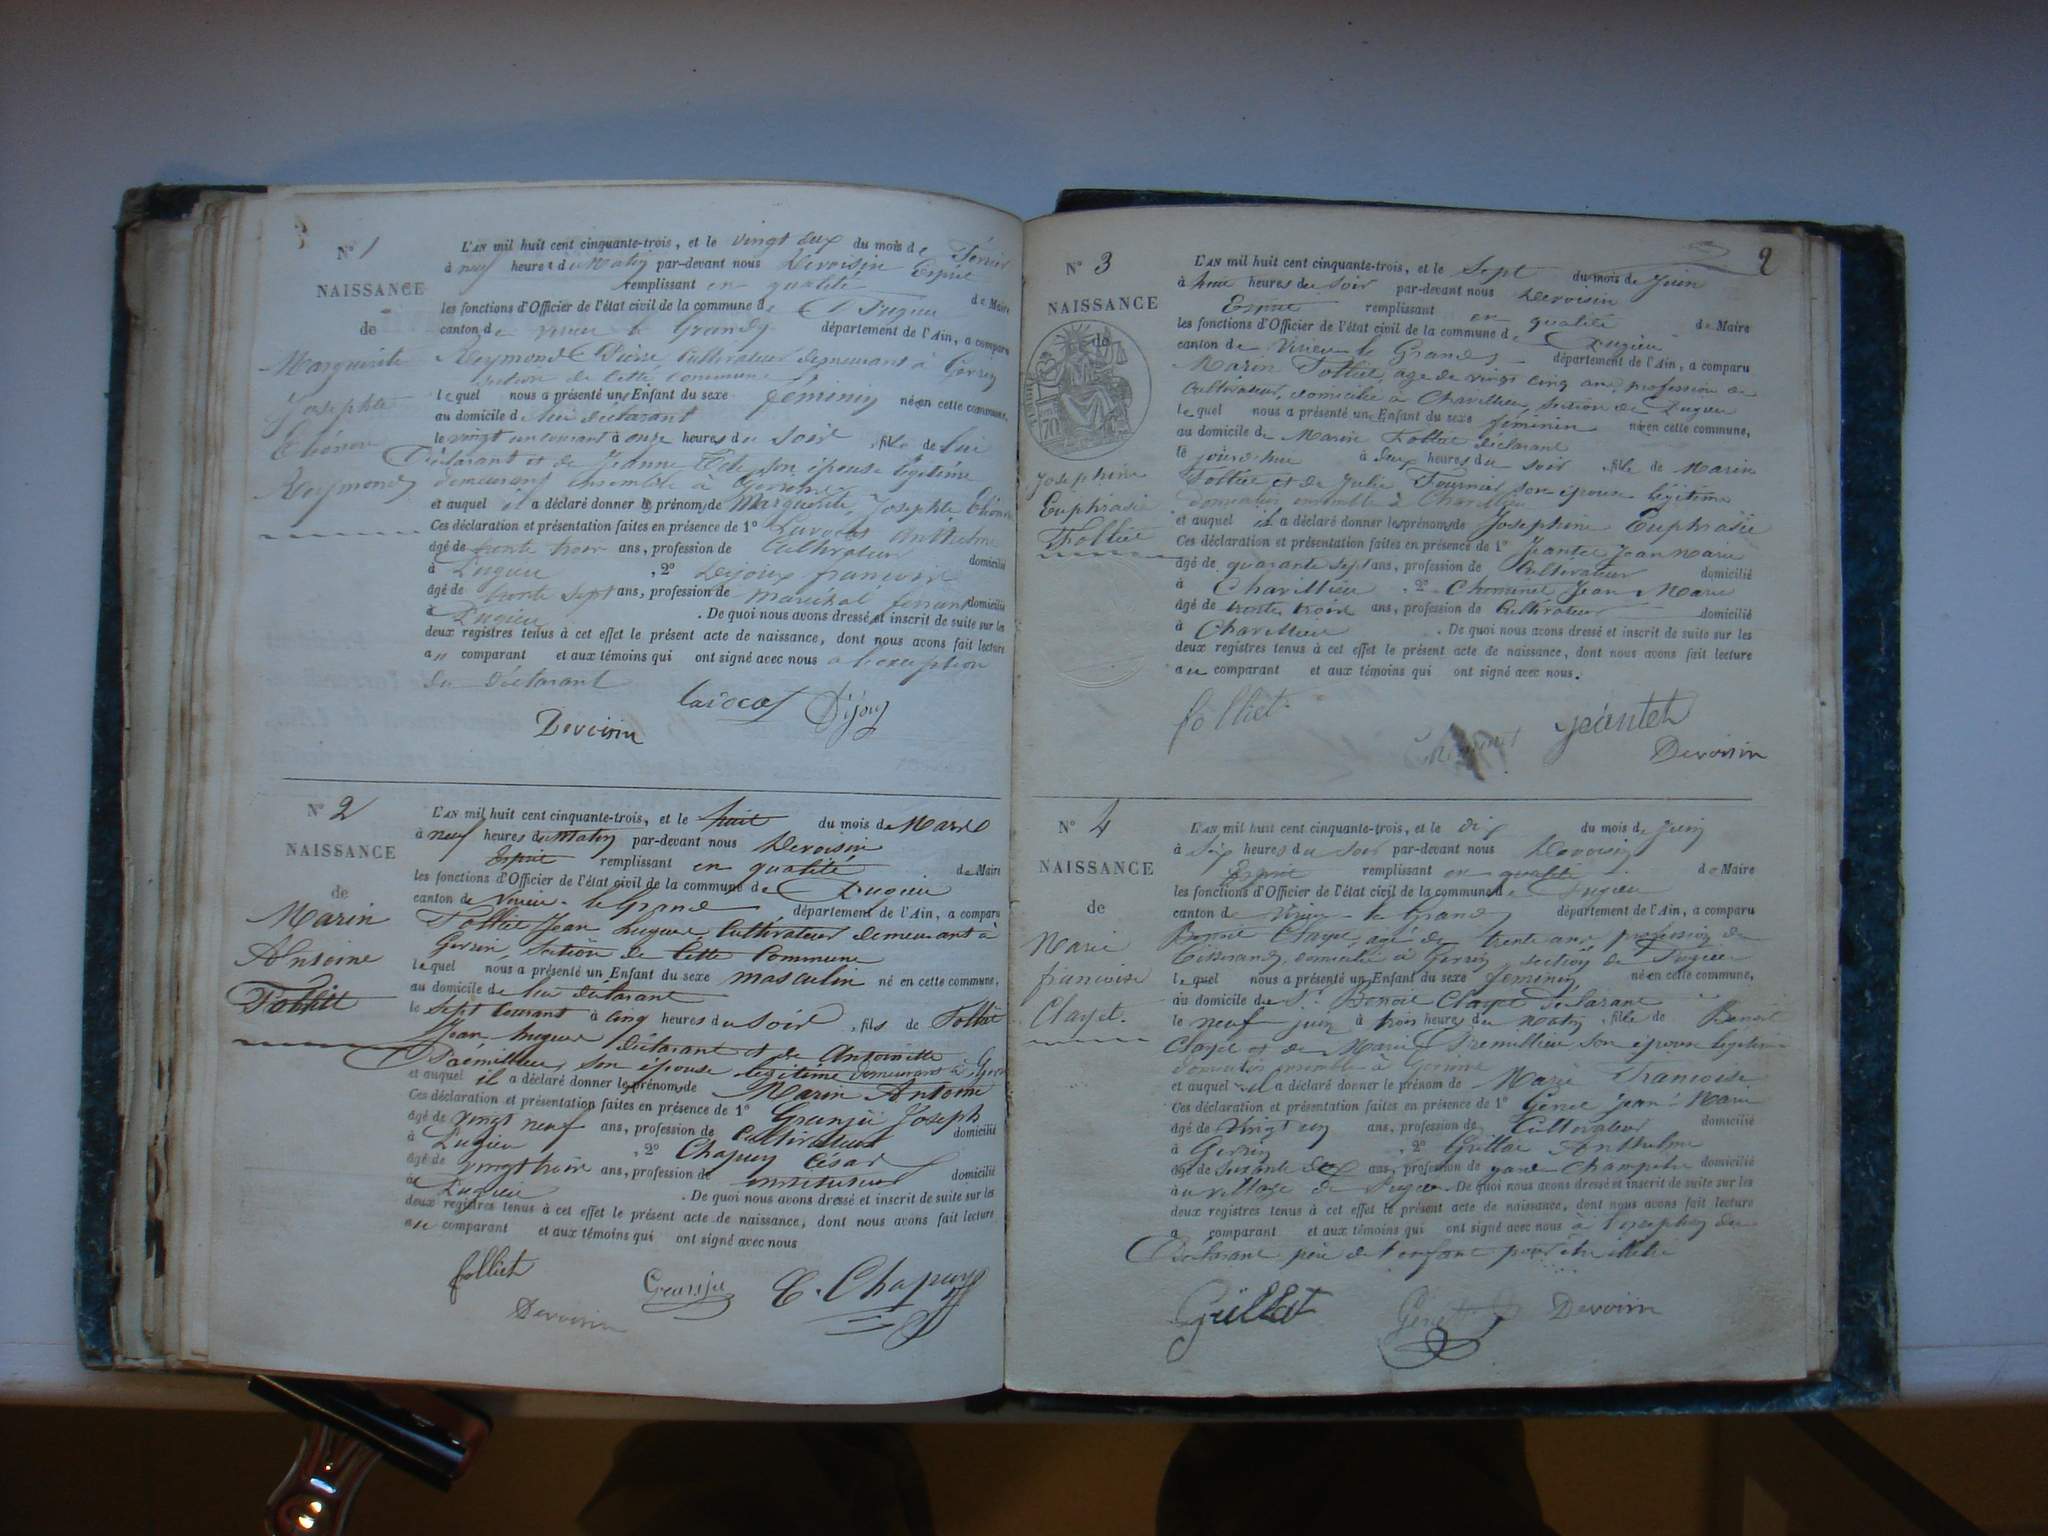 N° 1
NAISSANCE
de
Marguerite
Josephte
Raymond
L'AN mil huit cent cinquante-trois, et le vingt deux du mois de Février
à neuf heures du Matin par-devant nous Devoisin Esprit
remplissant en qualité de Maire
les fonctions d'Officier de l'état civil de la commune de Pugieu
canton de Virieu le Grand département de l'Ain, a comparu
Reymond Pierre Cultivateur demeurant à
section de Cette Commune
lequel nous a présenté un Enfant du sexe féminin né en cette commune,
au domicile de lui déclarant
le vingt un courant à onze heures du soir, fille de lui
Déclarant et de Jeanne son épouse légitime
demeurant ensemble à
et auquel il a déclaré donner les prénoms de Marguerite Josephte
Ces déclaration et présentation faites en présence de 1° Lavocat Anthelme
âgé de trente trois ans, profession de Cultivateur domicilié
à Pugieu, 2° Dijoux francois
âgé de trente sept ans, profession de Maréchal ferrant domicilié
à Pugieu. De quoi nous avons dressé et inscrit de suite sur les
deux registres tenus à cet effet le présent acte de naissance, dont nous avons fait lecture
au comparant et aux témoins qui ont signé avec nous à l'exception
du déclarant
Lavocat Dijoux
Devoisin
N° 2
NAISSANCE
de
Marin
Antoine
Folliet
L'AN mil huit cent cinquante-trois, et le huit du mois de Mars
à neuf heures du Matin par-devant nous Devoisin
Esprit remplissant en qualité de Maire
les fonctions d'Officier de l'état civil de la commune de Pugieu
canton de Virieu-le Grand département de l'Ain, a comparu
Folliet Jean hugue Cultivateur demeurant à
section de Cette Commune
lequel nous a présenté un Enfant du sexe masculin né en cette commune,
au domicile de lui déclarant
le sept Courant à Cinq heures du Soir, fils de Folliet
Jean hugue déclarant et de Antoinette
son épouse légitime demeurant à
et auquel il a déclaré donner les prénoms de Marin Antoine
Ces déclaration et présentation faites en présence de 1° Granju Joseph
âgé de vingt neuf ans, profession de Cultivateur domicilié
à Pugieu, 2° Chapuy César
âgé de vingt trois ans, profession de instituteur domicilié
à Pugieu. De quoi nous avons dressé et inscrit de suite sur les
deux registres tenus à cet effet le présent acte de naissance, dont nous avons fait lecture
au comparant et aux témoins qui ont signé avec nous
folliet Granju C. Chapuy
Devoisin
2
N° 3
NAISSANCE
de
Josephine
Euphrasie
Folliet
L'AN mil huit cent cinquante-trois, et le Sept du mois de Juin
à huit heures du soir par-devant nous Devoisin
Esprit remplissant en qualité de Maire
les fonctions d'Officier de l'état civil de la commune de Pugieu
canton de Virieu-le Grand département de l'Ain, a comparu
Marin Folliet, age de vingt cinq ans, profession de
Cultivateur, domicilié à Chavillieu section de Pugieu
lequel nous a présenté un Enfant du sexe féminin né en cette commune,
au domicile de Marin Folliet déclarant
le jourd'hui à deux heures du soir, fille de Marin
Folliet et de Julie Fournier son épouse légitime
domiciliés ensemble à Chavillieu
et auquel il a déclaré donner les prénoms de Josephine Euphrasie
Ces déclaration et présentation faites en présence de 1° Jeantet Jean Marie
âgé de quarante sept ans, profession de Cultivateur domicilié
à Chavillieu, 2° Cheminet Jean Marie
âgé de trente trois ans, profession de Cultivateur domicilié
à Chavillieu. De quoi nous avons dressé et inscrit de suite sur les
deux registres tenus à cet effet le présent acte de naissance, dont nous avons fait lecture
au comparant et aux témoins qui ont signé avec nous.
folliet jeantet
Devoisin
N° 4
NAISSANCE
de
Marie
francoise
Clayet.
L'AN mil huit cent cinquante-trois, et le dix du mois de Juin
à Six heures du soir par-devant nous Devoisin
Esprit remplissant en qualité de Maire
les fonctions d'Officier de l'état civil de la commune de Pugieu
canton de Virieu-le Grand département de l'Ain, a comparu
Benoit Clayet, agé de trente ans, profession de
Tisserand, domicilié à section de Pugieu
lequel nous a présenté un Enfant du sexe féminin né en cette commune,
au domicile du Sr Benoit Clayet déclarant
le neuf juin à trois heures du matin, fille de Benoit
Clayet et de Marie Premillieu son épouse légitime
domiciliés ensemble à
et auquel il a déclaré donner le prénom de Marie Francoise
Ces déclaration et présentation faites en présence de 1° Genet Jean-Marie
âgé de vingt cinq ans, profession de Cultivateur domicilié
à, 2° Guillat Anthelme
âgé de soixante deux ans, profession de garde Champêtre domicilié
au village de Pugieu. De quoi nous avons dressé et inscrit de suite sur les
deux registres tenus à cet effet le présent acte de naissance, dont nous avons fait lecture
a comparant et aux témoins qui ont signé avec nous à l'exception du
Déclarant père de l'enfant pour être illétré
Guillat Genet Devoisin